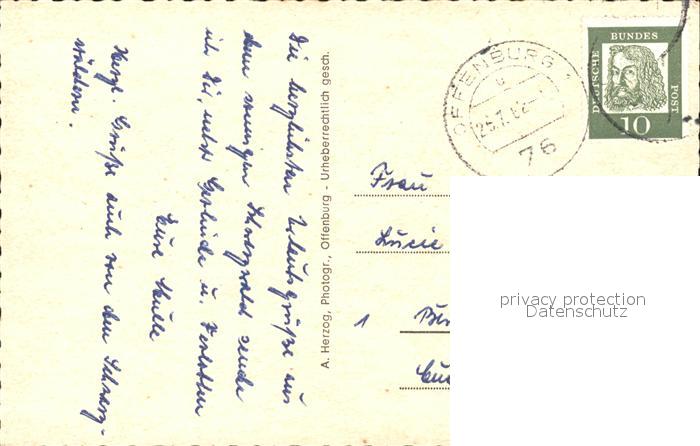 Die herzlichsten Urlaubsgrüße aus
dem sonnigen Schwarzwald sende
ich Dir, nebst Gerlinde u. Verlobten
Eure
Herzl. Grüße auch von den Schwarz-
wäldern.
A. Herzog, Photogr., Offenburg - Urheberrechtlich gesch.
OFFENBURG 1
u
25.7.62
76
DEUTSCHE BUNDES POST
10
Frau
Lucie
1 Ber
privacy protection
Datenschutz